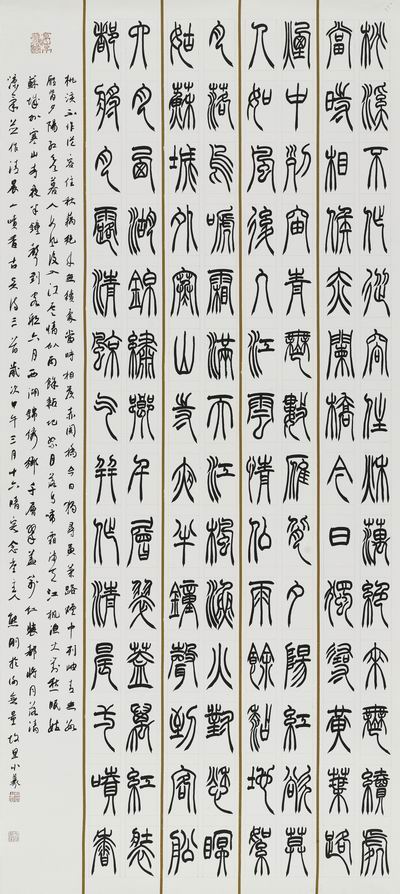 桃溪不作從容住秋藕絕來無續處
當時相候赤闌橋今日獨尋黃葉路
煙中列岫青無數雁背夕陽紅欲莫
人如風後入江雲情似雨餘黏地絮
月落烏啼霜滿天江楓漁火對愁瞑
姑蘇城外寒山寺夜半鐘聲到客船
六月西湖錦繡鄉千層翠蓋萬紅裝
都將月露清涼氣并作清晨一噴香
桃溪不作從容住秋藕絕來無續處當時相候赤闌橋今日獨尋黃葉路煙中列岫青無數
雁背夕陽紅欲暮人如風後入江雲情似雨餘黏地絮月落烏啼霜滿天江楓漁火對愁眠姑
蘇城外寒山寺夜半鐘聲到客船六月西湖錦繡鄉千層翠蓋萬紅裝都將月露清
涼氣并作清晨一噴香古詩三首歲次甲午三月十六晴窗念堂主人熊剛於